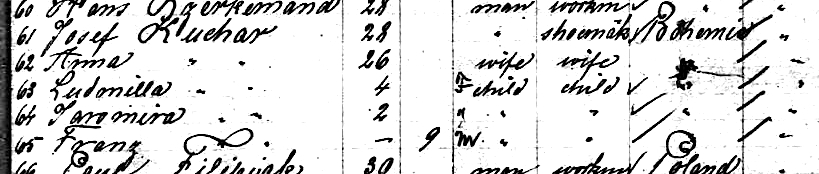 60 Frans 28 man workm
61 Josef Kuchar 28 " shoemak Bohemia "
62 Anna " " 26 wife wife "
63 Ludmilla " " 4 F child child " "
64 Jaromira " " 2 " " " " "
65 Franz " - 9 M " " " "
66 Paul 30 man workm Poland "